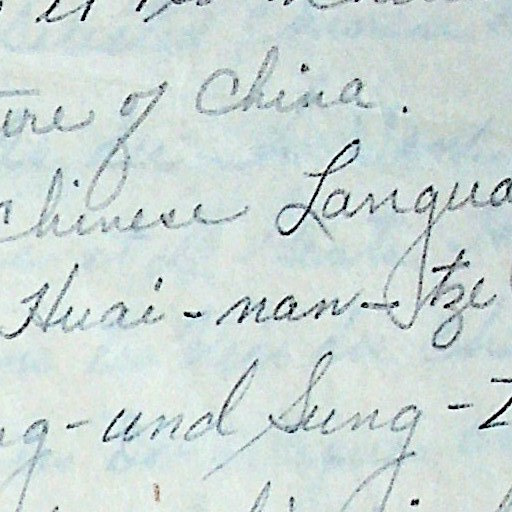 ture of China.
Chinese Langua
Huai-nan-tze
ng-und Sung-Z